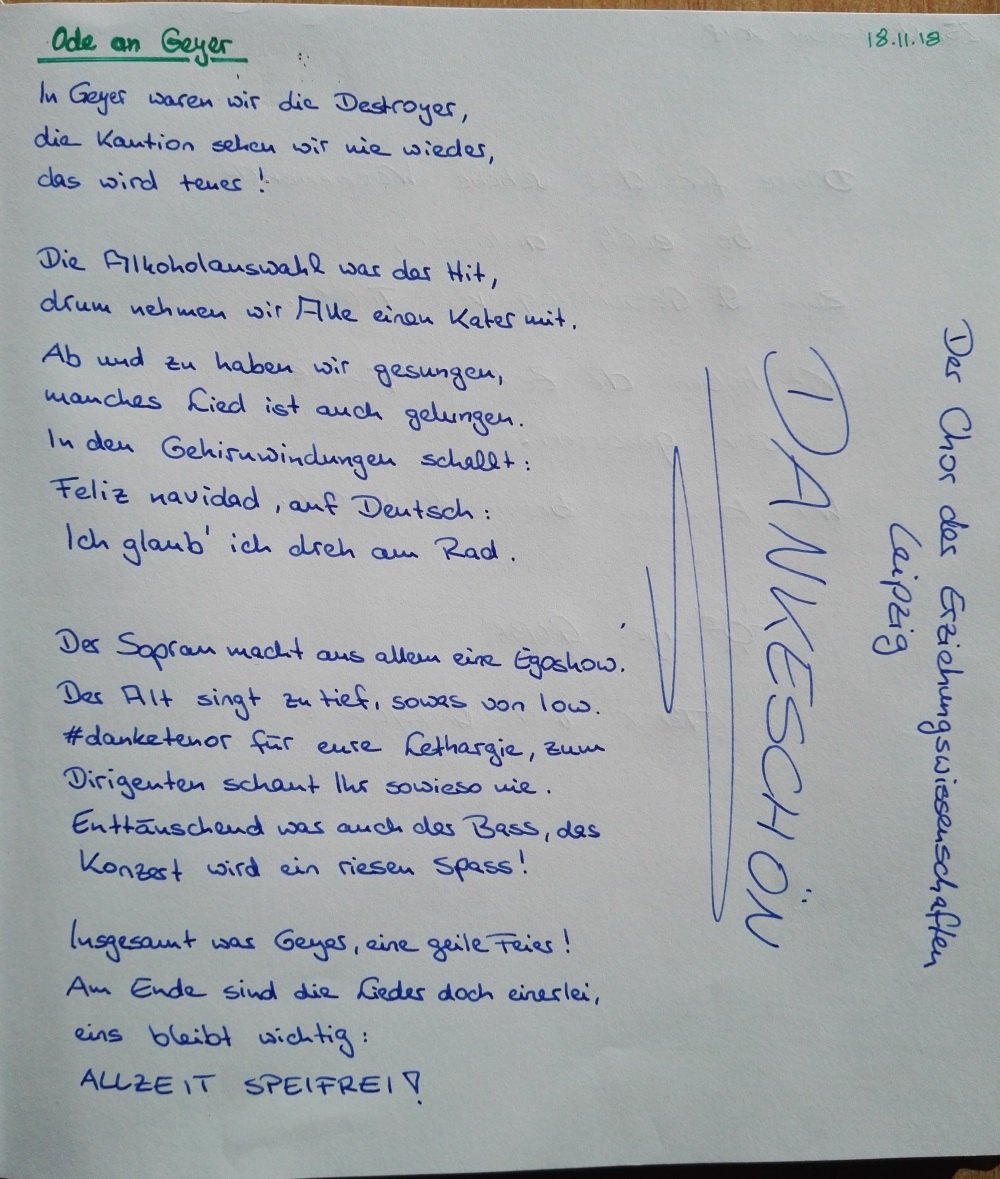 Ode an Geyer
18.11.18
In Geyer waren wir die Destroyer,
die Kaution sehen wir nie wieder,
das wird teuer!
Die Alkoholauswahl war der Hit,
drum nehmen wir Alle einen Kater mit.
Ab und zu haben wir gesungen,
manches Lied ist auch gelungen.
In den Gehirnwindungen schallt:
Feliz navidad, auf Deutsch:
Ich glaub' ich dreh am Rad.
Der Sopran macht aus allem eine Egoshow.
Der Alt singt zu tief, sowas von low.
#danketenor für eure Lethargie, zum
Dirigenten schaut Ihr sowieso nie.
Enttäuschend war auch der Bass, das
Konzert wird ein riesen Spass!
Insgesamt war Geyer, eine geile Feier!
Am Ende sind die Lieder doch einerlei,
eins bleibt wichtig:
ALLZEIT SPEIFREI!
DANKESCHÖN
Der Chor der Erziehungswissenschaften
Leipzig